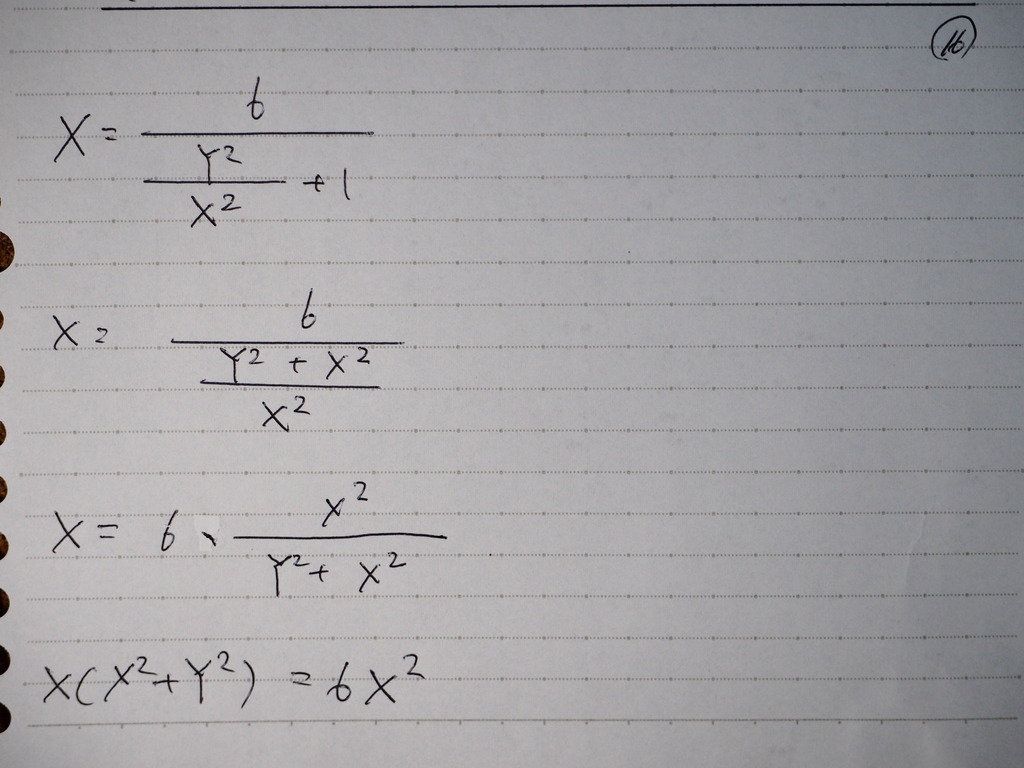 16
X = 6 / (Y² / X² + 1)
X = 6 / ((Y² + X²) / X²)
X = 6 · X² / (Y² + X²)
X(X² + Y²) = 6X²